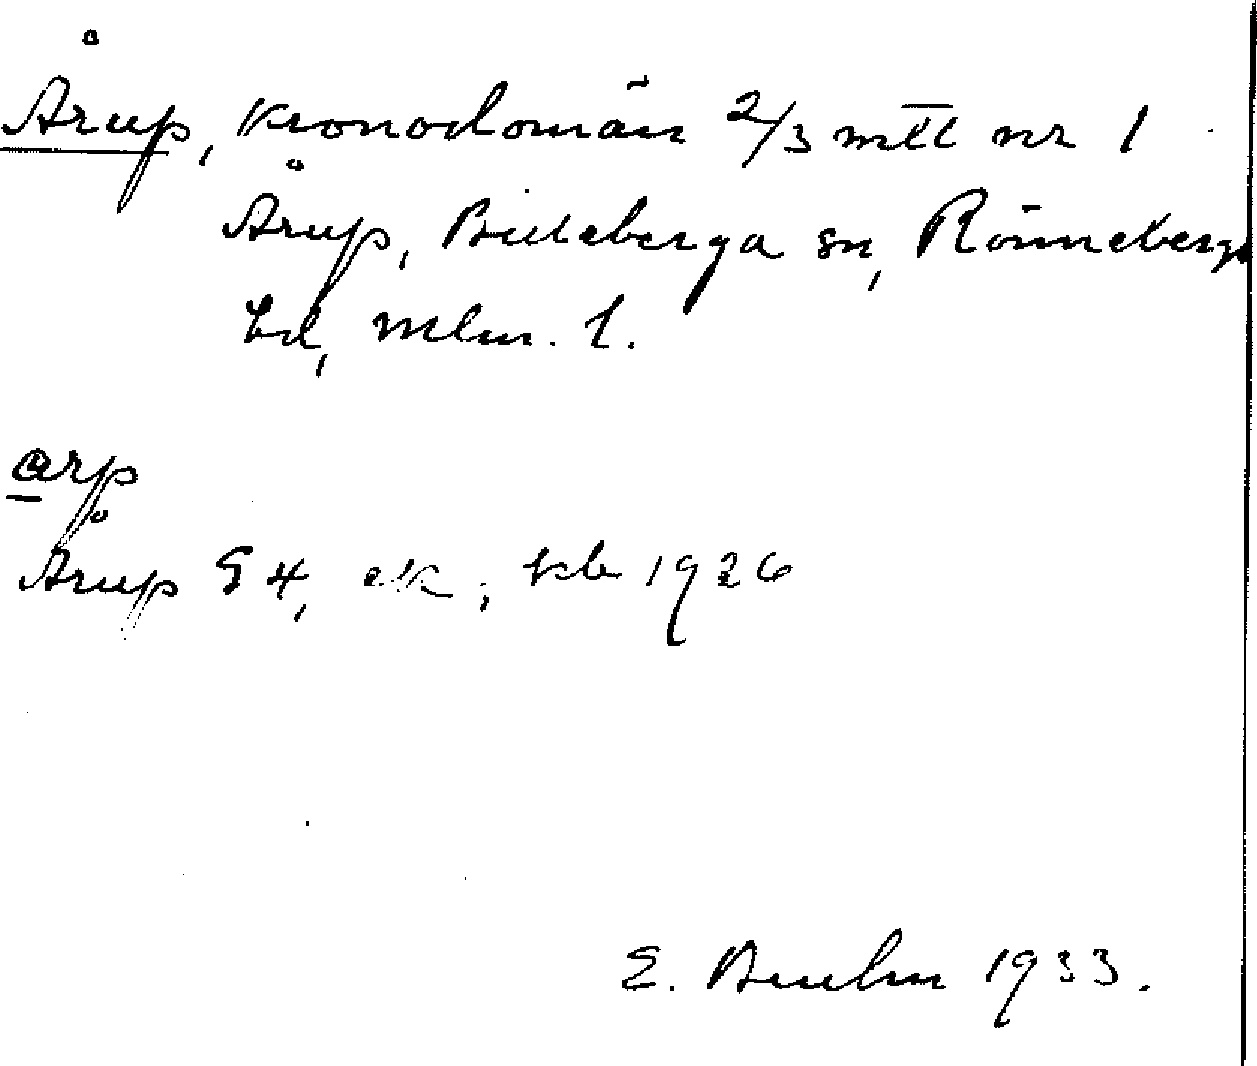 Årup, kronodomän 2/3 mtl nr 1
Årup, Billeberga sn, Rönneberga
hd, Mlm. l.
arp
Årup G4, ek, kb 1926
E. 1933.